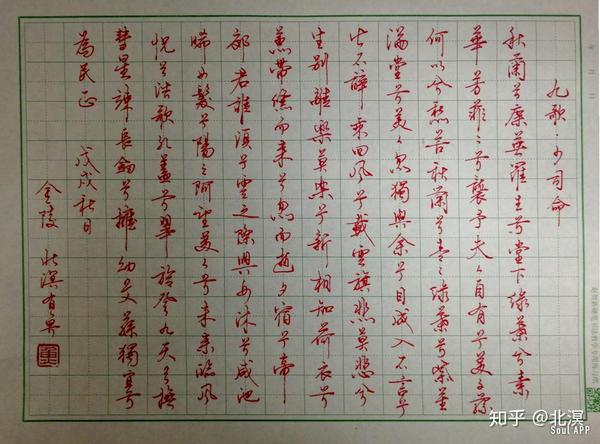 九歌·少司命
秋蘭兮麋蕪羅生兮堂下綠葉兮素
華芳菲々兮襲予夫人自有兮美子蓀
何以兮愁苦秋蘭兮青々綠葉兮紫莖
滿堂兮美人忽獨與余兮目成入不言兮
出不辭乘回風兮載雲旗悲莫悲兮
生別離樂莫樂兮新相知荷衣兮
蕙帶儵而來兮忽而逝夕宿兮帝
郊君誰須兮雲之際與女沐兮咸池
晞女髮兮陽之阿望美人兮未來臨風
怳兮浩歌孔蓋兮翠旍登九天兮撫
彗星竦長劍兮擁幼艾蓀獨宜兮
為民正 戊戌秋日
金陵 北溟有魚
知乎 @北溟
Soul APP